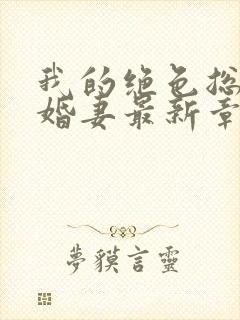 我的绝色总
婚妻最新章
夢貘言靈